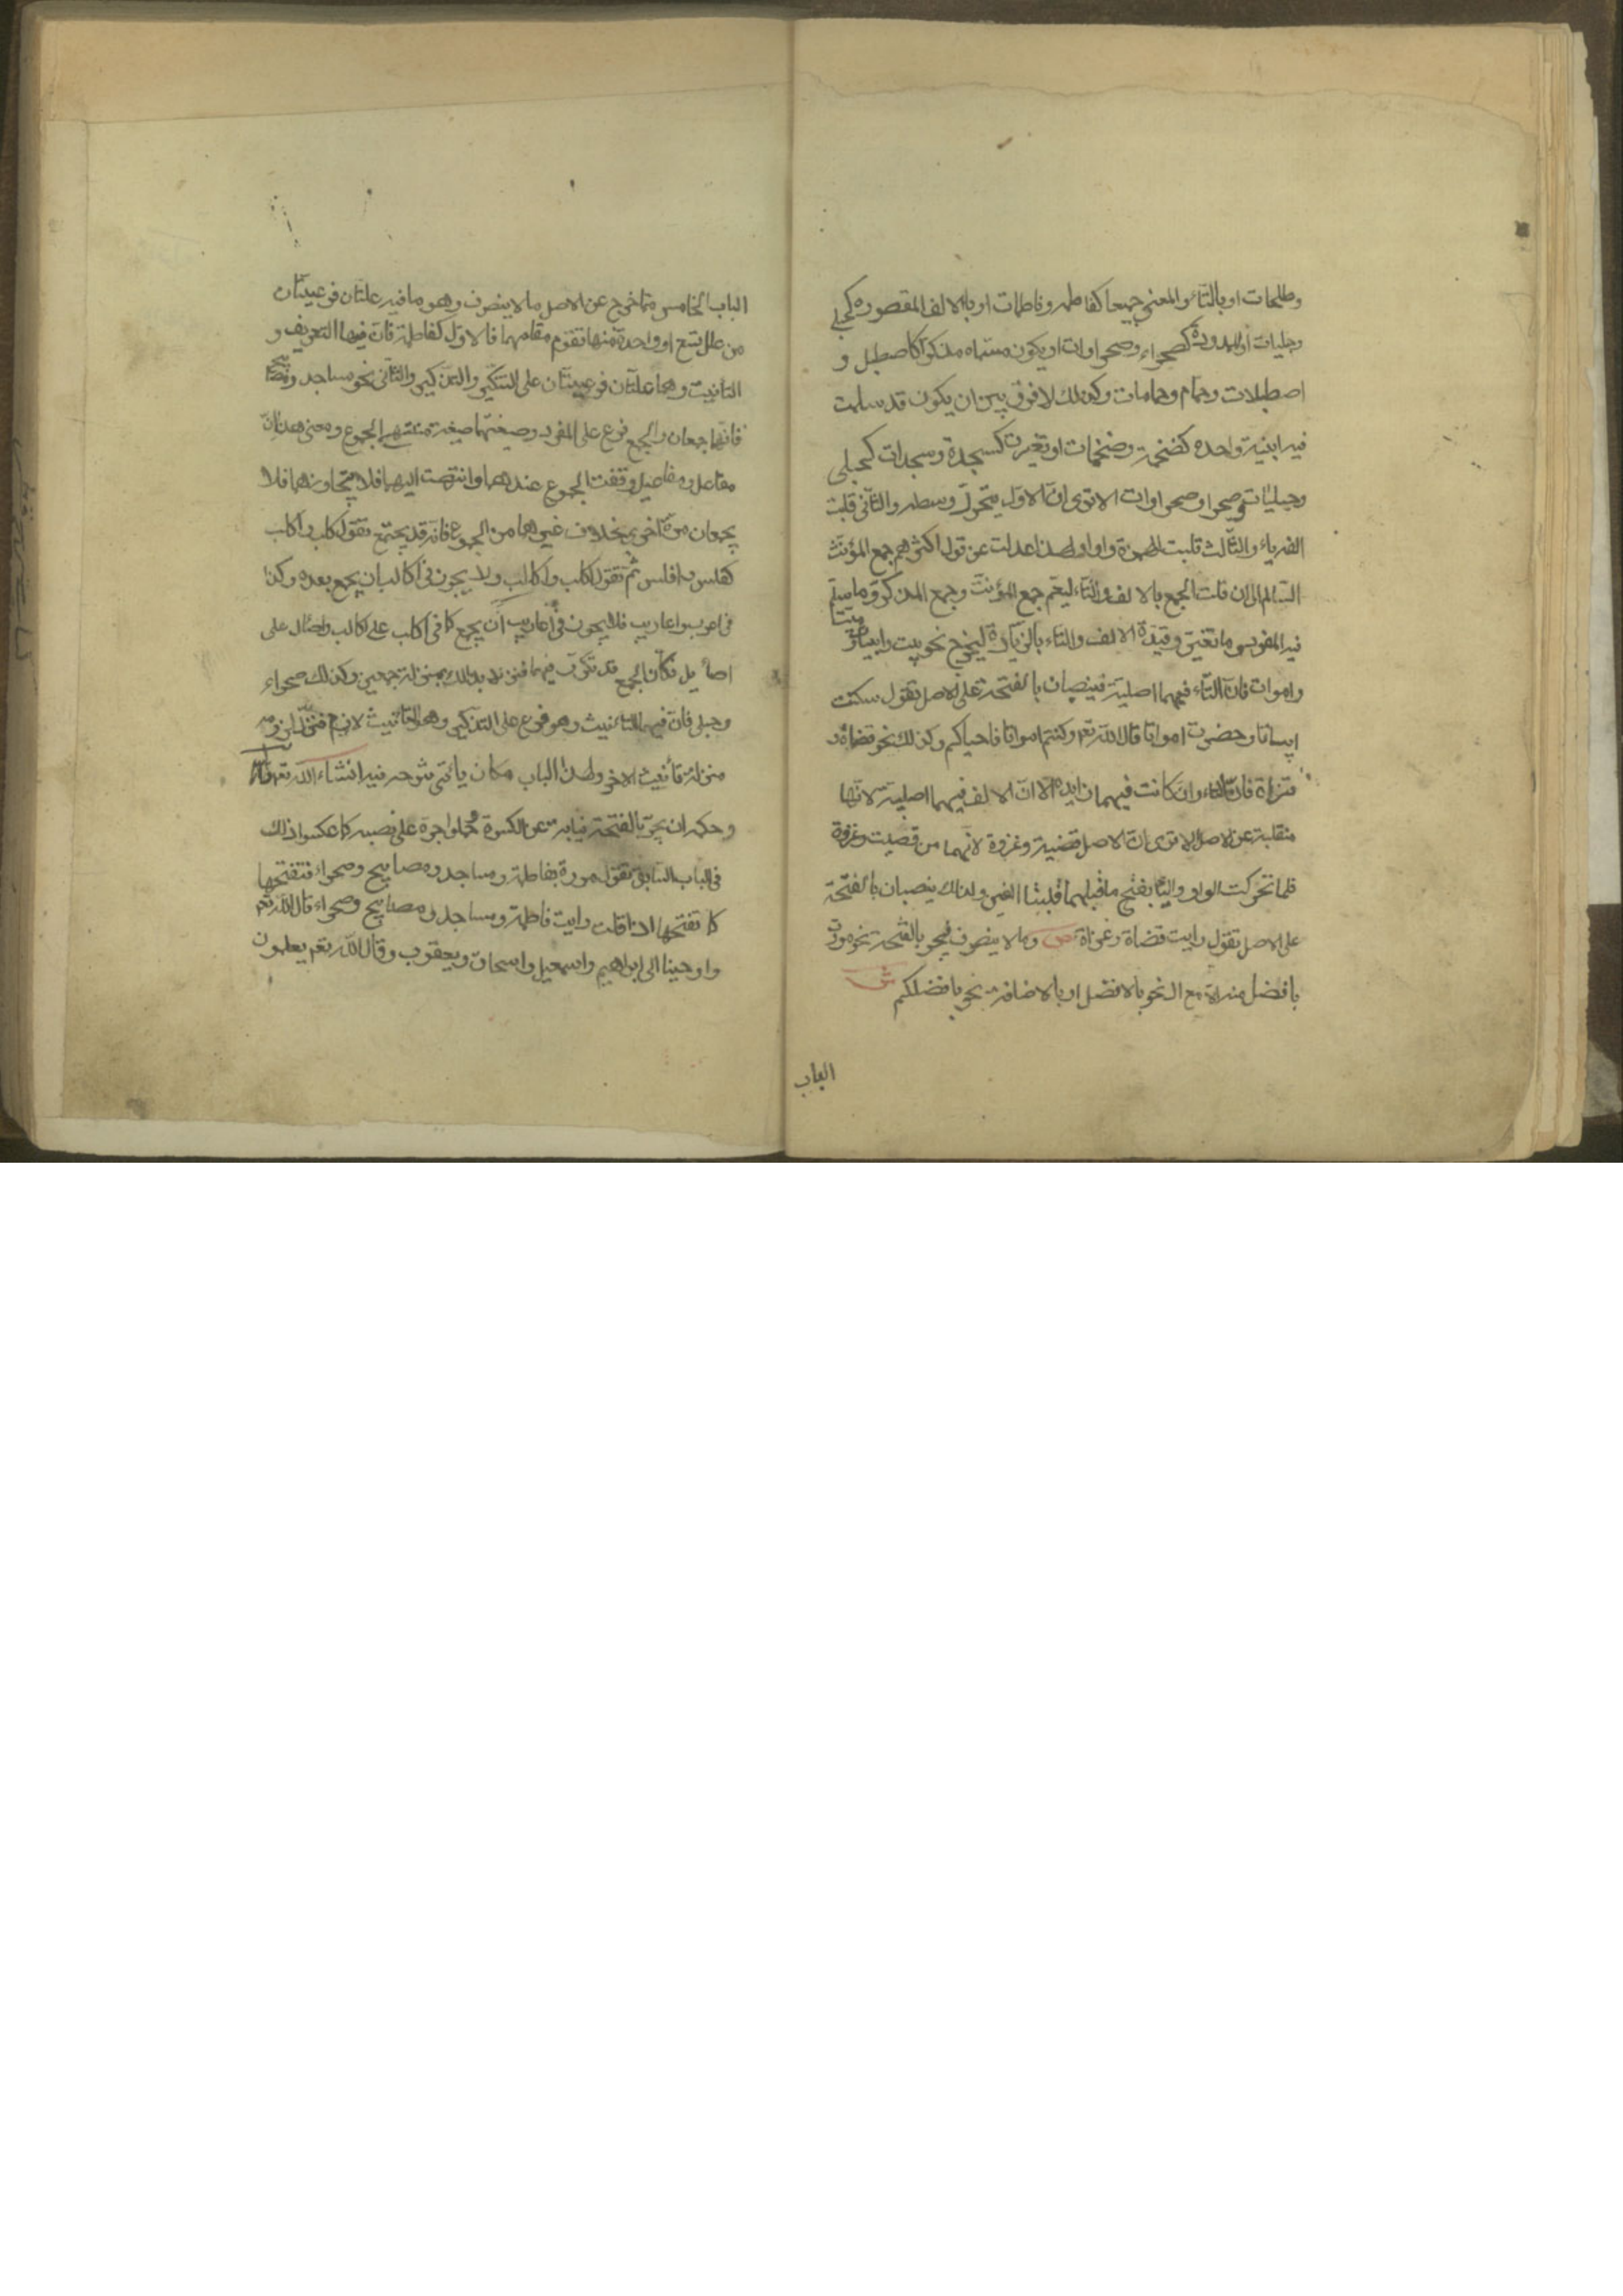 وطلحات او بالتاء والمعنى جميعا كفاطمه وفاطمات او بالالف المقصوره كحبلى
وحبليات او الممدودة كصحراء وصحراوات او يكون مسماه مذكرا كاصطبل و
اصطبلات وحمام وحمامات وكذلك لا فرق بين ان يكون قد سلمت
فيه ابنية واحده كضخمة وضخمات او تغيرت كسجدة وسجدات كحبلى
وحبليات وصحرا وصحراوات الا ترى ان الاول يتحرك وسطه والثانى قلبت
الفه ياء والثالث قلبت الهمزة واوا ولهذا عدلت عن قول اكثرهم جمع المؤنث
السالم الى ان قلت الجمع بالالف والتاء ليعم جمع المؤنث وجمع المذكر وما سلم
فيه المفرد وما تغير وقيدة الالف والتاء بالزيادة ليخرج نحو بيت وابيات
واموات فان التاء فيهما اصلية فينصبان بالفتحة على الاصل تقول سكنت
ابياتا وحضرت امواتا قال الله تعم وكنتم امواتا فاحياكم وكذلك نحو قضاة و
غزاة فان التاء وان كانت فيهما زايده الا ان الالف فيهما اصلية لانها
منقلبة عن الاصل الا ترى ان الاصل قضية وغزوة لانهما من قضيت وغزوة
فلما تحركت الواو والياء بفتح ما قبلهما قلبتا الفين ولذلك ينصبان بالفتحة
على الاصل تقول رايت قضاة وغزاة ص وما لا ينصرف فيجر بالفتحة نحو مررت
بافضل منه الا مع ال نحو بالافضل او بالاضافة نحو بافضلكم ش
الباب
الباب الخامس مما خرج عن الاصل ما لا ينصرف وهو ما فيه علتان فرعيتان
من علل تسع او واحدة منها تقوم مقامهما فالاول كفاطمة فان فيها التعريف و
التانيث وهما علتان فرعيتان على التنكير والتذكير والثانى نحو مساجد ومصابيح
فانهما جمعان والجمع فرع على المفرد وصيغتهما صيغة منتهى الجموع ومعنى هذا ان
مفاعل ومفاعيل وقفت الجموع عندهما وانتهت اليهما فلا تتجاوزهما فلا
يجمعان مرة اخرى بخلاف غيرهما من الجموع فانه قد يجمع تقول كلب واكلب
كفلس وافلس ثم تقول اكلب واكالب ولا يجوز فى اكالب ان يجمع بعده وكذا
فى اعرب واعاريب فلا يجوز فى اعاريب ان يجمع كما فى اكلب على اكالب واصال على
اصائيل فكان الجمع قد تكرر فيهما فنزلا بذلك بمنزلة جمعين وكذلك صحراء
وحبلى فان فيهما التانيث وهو فرع على التذكير وهو تانيث لازم فنزل لزومه
منزلة تأنيث الاخر ولهذا الباب مكان يأتى شرحه فيه انشاء الله تعم
وحكمه ان يجر بالفتحة نيابة عن الكسرة حملوا جره على نصبه كما عكسوا ذلك
فى الباب السابق تقول مررة بفاطمة ومساجد ومصابيح وصحراء فتفتحها
كما تفتحها اذا قلت رايت فاطمة ومساجد ومصابيح وصحراء قال الله تعم
واوحينا الى ابراهيم واسمعيل واسحاق ويعقوب وقال الله تعم يعملون